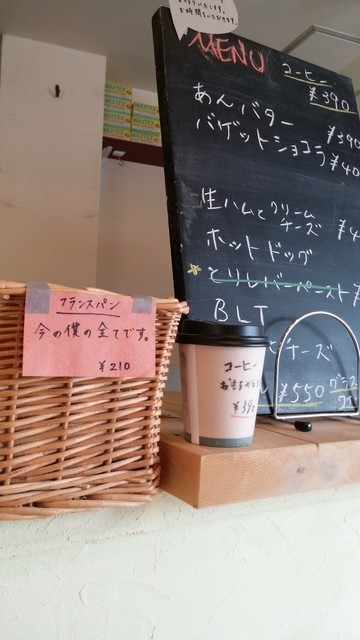 お時間をいただきます。
MENU
コーヒー
¥390
あんバター ¥390
バゲットショコラ ¥40
生ハムとクリーム
チーズ ¥4
ホットドッグ
とりレバーペースト
BLT
とチーズ
¥550
フランスパン
今の僕の全てです。
¥210
コーヒー
¥39